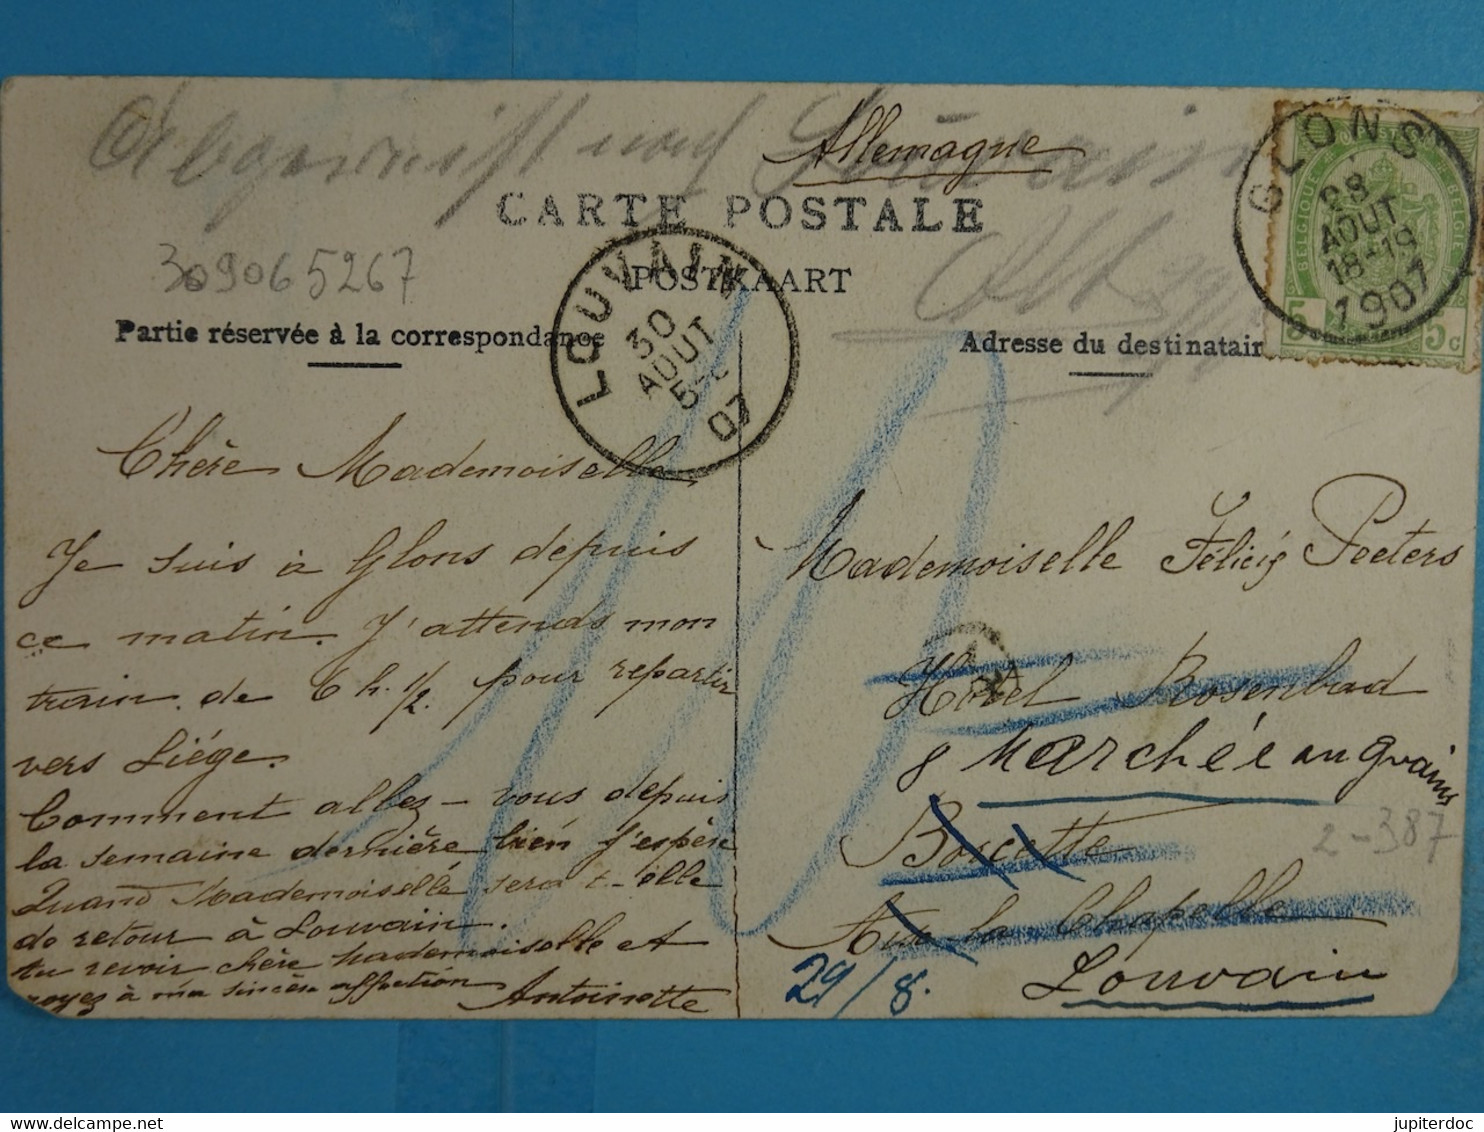 Abgereist nach Louvain
Allemagne
CARTE POSTALE
POSTKAART
309065267
Partie réservée à la correspondance
Adresse du destinatair
LOUVAIN
30
AOUT
5-
07
GLONS
28
AOUT
18-19
1907
BELGIQUE
BELGIË
5 5c
Chère Mademoiselle
Je suis à Glons depuis
ce matin. J'attends mon
train de 6 h. 1/2. pour repartir
vers Liége.
Comment allez-vous depuis
la semaine dernière bien j'espère
Quand Mademoiselle sera t-elle
de retour à Louvain.
Au revoir chère Mademoiselle et
croyez à ma sincère affection
Antoinette
Mademoiselle Félicie Peeters
Hôtel Rosenbad
8 Marchée au grains
Borcette
Aix la Chapelle
Louvain
29/8.
2-387
jupiterdoc